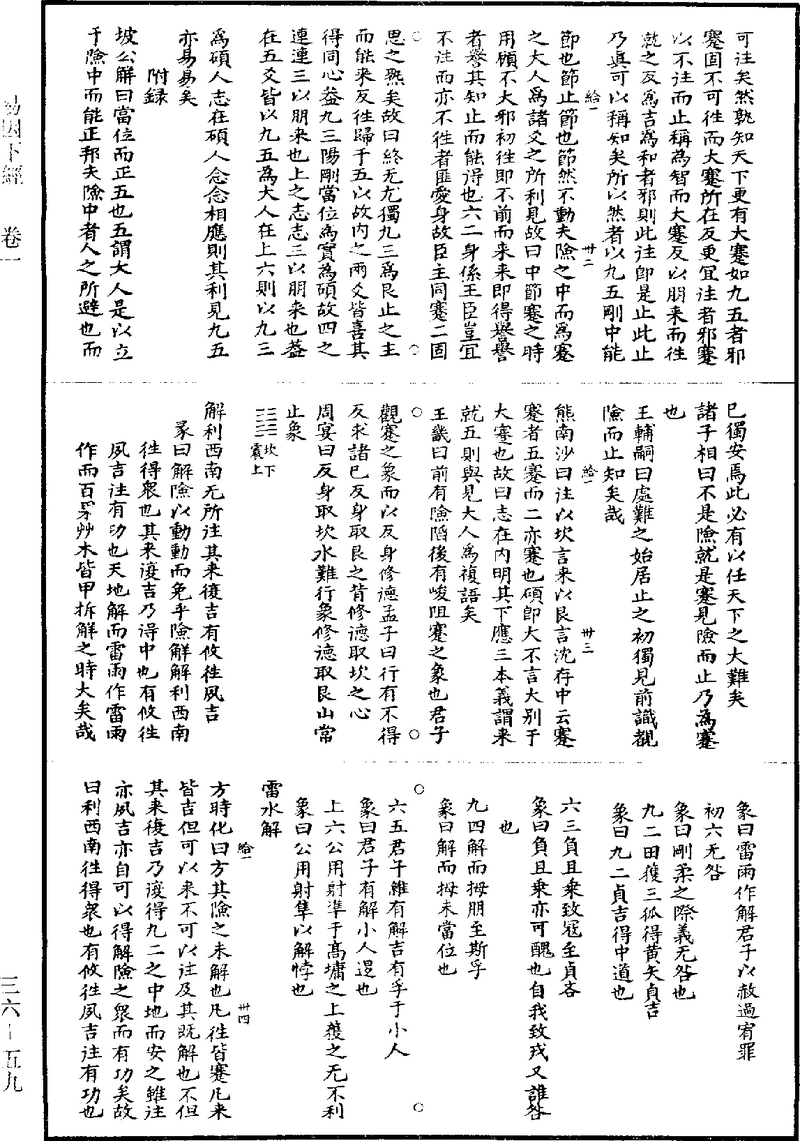 可往矣然孰知天下更有大蹇如九五者邪
蹇固不可往而大蹇所在反更宜往者邪蹇
以不往而止稱為智而大蹇反以朋来而往
就之反為吉為和者邪則此往卽是止此止
乃真可以稱知矣所以然者以九五剛中能
給一
卅二
節也節止節也節然不動夫險之中而為蹇
之大人為諸爻之所利見故曰中節蹇之時
用顧不大邪初往即不前而来来即得譽譽
者譽其知止而能得也六二身係王臣豈宜
不往而亦不往者匪愛身故臣主同蹇二固
思之熟矣故曰終无尤獨九三為艮止之主
而能来反往歸于五以故内之兩爻皆喜其
得同心益九三陽剛當位為實為碩故四之
連連三以朋来也上之志志三以朋来也蓋
在五爻皆以九五為大人在上六則以九三
為碩人志在碩人念念相應則其利見九五
亦易易矣
附録
坡公解曰當位而正五也五謂大人是以立
于險中而能正邦夫險中者人之所避也而
已獨安焉此必有以任天下之大難矣
諸子相曰不是險就是蹇見險而止乃為蹇
也
王輔嗣曰處難之始居止之初獨見前識覩
險而止知矣哉
給一
卅三
熊南沙曰往以坎言来以艮言沈存中云蹇
蹇者五蹇而二亦蹇也碩卽大不言大别于
大蹇也故曰志在内明其下應三本義謂来
就五則與見大人為複語矣
王畿曰前有險陷後有峻阻蹇之象也君子
觀蹇之象而以反身修德孟子曰行有不得
反求諸已反身取艮之背修德取坎之心
周宴曰反身取坎水難行象修德取艮山常
止象
坎下
震上
解利西南无所往其来復吉有攸往夙吉
彖曰解險以動動而免乎險解解利西南
往得衆也其来復吉乃得中也有攸往
夙吉往有功也天地解而雷雨作雷雨
作而百果艸木皆甲拆解之時大矣哉
象曰雷雨作解君子以赦過宥罪
初六无咎
象曰剛柔之際義无咎也
九二田獲三狐得黄矢貞吉
象曰九二貞吉得中道也
六三負且乗致寇至貞吝
象曰負且乗亦可醜也自我致戎又誰咎
也
九四解而拇朋至斯孚
象曰解而拇未當位也
六五君子維有解吉有孚于小人
象曰君子有解小人退也
上六公用射隼于髙墉之上獲之无不利
象曰公用射隼以解悖也
雷水解
給一
卅四
方時化曰方其險之未解也凡往皆蹇凡来
皆吉但可以来不可以往及其既解也不但
其来復吉乃復得九二之中地而安之雖往
亦夙吉亦自可以得解險之衆而有功矣故
曰利西南往得衆也有攸往夙吉往有功也
易因下經　卷一
三六－五九